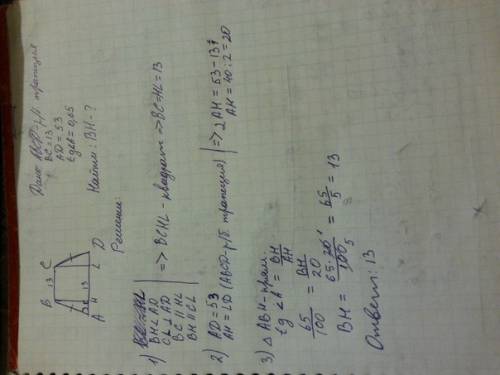 Дано: ABCD-р/б трапеция
BC=13
AD=53
tg∠A=0,65
Найти: BH-?
B 13 C
13
A H L D
Решение:
1) BH⊥AD
CL⊥AD
BC∥HL
BH∥CL
=> BCHL-квадрат => BC=HL=13
2) AD=53
AH=LD (ABCD-р/б трапеция)
=> 2AH=53-13
AH=40:2=20
3) △ABH-прям.
tg∠A = BH/AH
65/100 = BH/20
BH = 65·20/100 = 65/5 = 13
Ответ: 13